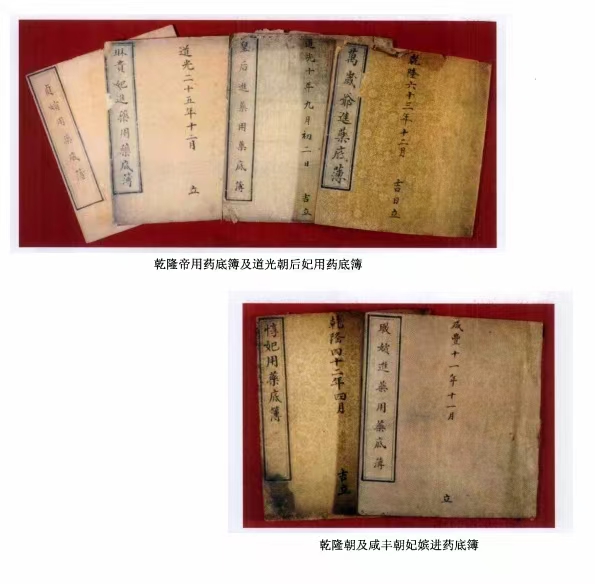 萬歲爺進藥底簿
乾隆六十三年十二月
吉日立
皇后進藥用藥底簿
道光十年九月初二日
吉立
琳貴妃進藥用藥底簿
道光二十五年十二月
立
嬪用藥底簿
乾隆帝用药底簿及道光朝后妃用药底簿
惇妃用藥底簿
乾隆四十二年四月
吉立
嬪進藥用藥底簿
咸豐十一年十一月
立
乾隆朝及咸丰朝妃嫔进药底簿